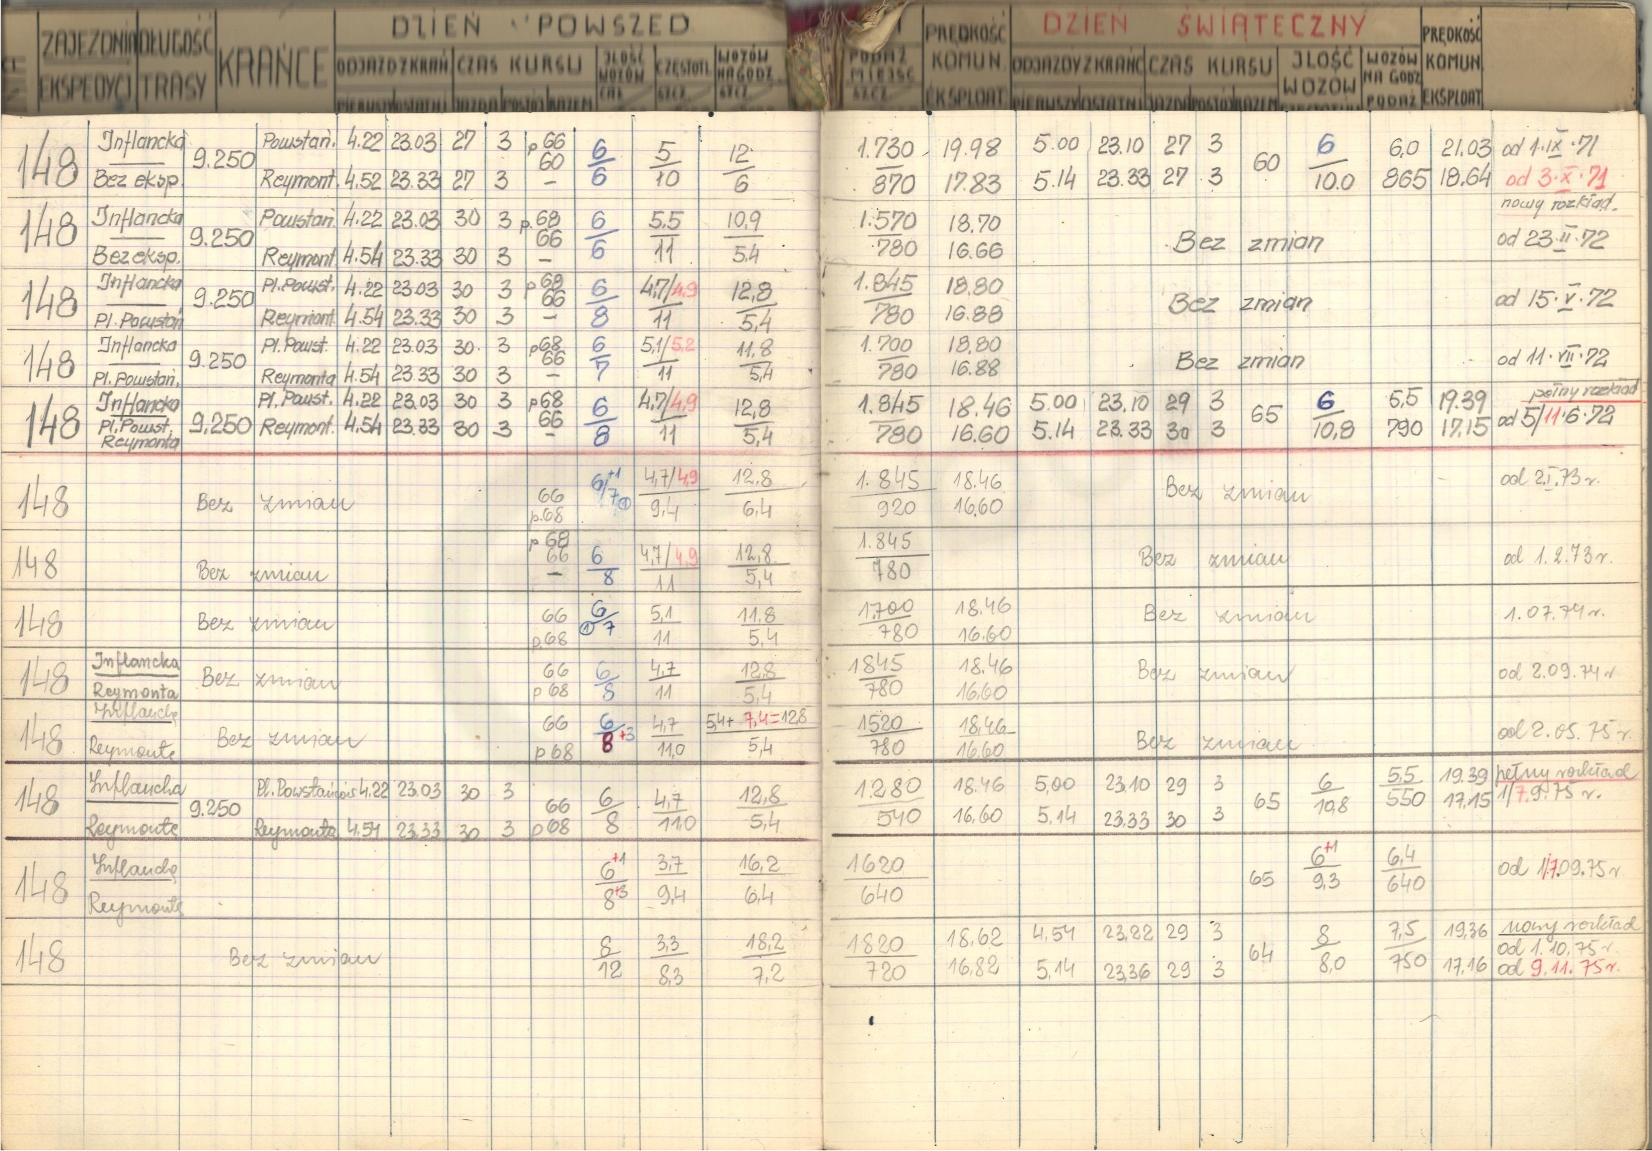 ZAJEZDNIA DŁUGOŚĆ KRAŃCE DZIEŃ POWSZED PRĘDKOŚĆ DZIEŃ ŚWIĄTECZNY PRĘDKOŚĆ
EKSPEDYCJ TRASY ODJAZDZKRAŃ CZAS KURSU ILOŚĆ WOZÓW CZĘSTOTL WOZÓW NA GODZ PODAŻ MIEJSC KOMUN. ODJAZDYZKRAŃC CZAS KURSU ILOŚĆ WOZÓW WOZÓW NA GODZ KOMUN.
PIERWSZY OSTATNI JAZDA POSTÓJ RAZEM SZCZ. SZCZ. EKSPLOAT PIERWSZY OSTATNI JAZDA POSTÓJ RAZEM PODAŻ EKSPLOAT
148 Inflancka 9.250 Powstań. 4.22 23.03 27 3 p 66 6 5 12 1.730 19.98 5.00 23.10 27 3 60 6 6,0 21,03 od 1.IX.71
Bez eksp. Reymont. 4.52 23.33 27 3 60 – 6 10 6 870 17.83 5.14 23.33 27 3 10.0 865 18.64 od 3.X.71
nowy rozkład.
148 Inflancka 9.250 Powstań 4.22 23.03 30 3 p.68 6 5.5 10,9 1.570 18.70 Bez zmian od 23.II.72
Bez eksp. Reymont 4.54 23.33 30 3 66 – 6 11 5.4 780 16.66
148 Inflancka 9.250 Pl.Powst. 4.22 23.03 30 3 p68 6 4,7/4,9 12,8 1.845 18,80 Bez zmian od 15.V.72
Pl.Powstań Reymont 4.54 23.33 30 3 66 – 8 11 5,4 780 16.88
148 Inflancka 9.250 Pl.Powst. 4.22 23.03 30 3 p68 6 5,1/5,2 11,8 1.700 18,80 Bez zmian od 11.VII.72
Pl.Powstań. Reymonta 4.54 23.33 30 3 66 – 7 11 5,4 780 16.88
pełny rozkład
148 Inflancka 9.250 Pl.Powst. 4.22 23.03 30 3 p68 6 4,7/4,9 12,8 1.845 18.46 5.00 23,10 29 3 65 6 5,5 19.39 od 5/11.6.72
Pl.Powst. Reymonta Reymont. 4.54 23.33 30 3 66 – 8 11 5,4 780 16.60 5.14 23.33 30 3 10,8 790 17,15
148 Bez zmian 66 6+1 4,7/4,9 12,8 1.845 18.46 Bez zmian od 2.I.73r.
p.68 7 9,4 6,4 920 16,60
148 Bez zmian p 68 66 – 6 4,7/4,9 12,8 1.845 Bez zmian od 1.2.73r.
8 11 5,4 780
148 Bez zmian 66 6 5,1 11,8 1.700 18.46 Bez zmian 1.07.74r.
p.68 7 11 5,4 780 16.60
148 Inflancka Bez zmian 66 6 4,7 12,8 1845 18.46 Bez zmian od 2.09.74r
Reymonta p 68 8 11 5,4 780 16.60
148 Inflanckę Bez zmian 66 6 4,7 5,4+ 7,4=12,8 1520 18,46 Bez zmian od 2.05.75r.
Reymontę p 68 8+3 11,0 5,4 780 16,60
148 Inflancka 9.250 Pl.Powstańców 4.22 23.03 30 3 66 6 4,7 12,8 1280 18.46 5,00 23,10 29 3 65 6 5,5 19.39 pełny rozkład
Reymontę Reymonta 4.54 23.33 30 3 p 68 8 11.0 5,4 540 16,60 5,14 23,33 30 3 10,8 550 17,15 1/7.9.75r.
148 Inflanckę 6+1 3,7 16,2 1620 65 6+1 6,4 od 1/7.09.75r
Reymontę 8+3 9,4 6,4 640 9,3 640
148 Bez zmian 8 3,3 18,2 1820 18,62 4,54 23,22 29 3 64 8 7,5 19,36 nowy rozkład
12 8,3 7,2 720 16,82 5,14 23,36 29 3 8,0 750 17,16 od 1.10.75r.
od 9.11.75r.